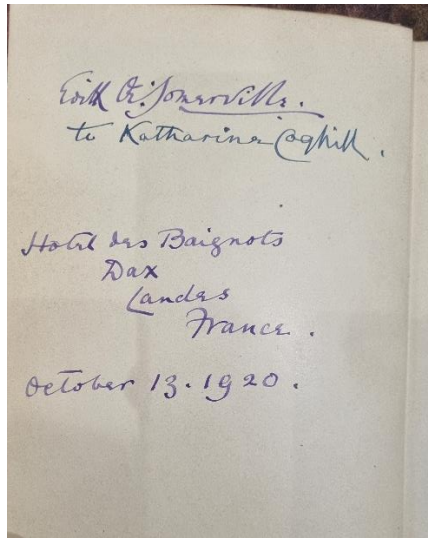 Edith Œ. Somerville.
to Katharine Coghill.
Hotel des Baignots
Dax
Landes
France.
October 13. 1920.